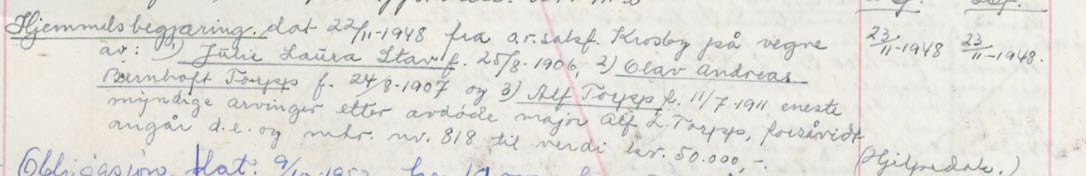 Hjemmelsbegjæring dat 22/11-1948 fra o.r.sakf. Krosby på vegne 23/11-1948 23/11-1948.
av: 1) Julie Laura Stav f. 25/8-1906, 2) Olav Andreas
Bernhoft Torpp f. 24/8-1907 og 3) Alf Torpp f. 11/7-1911 eneste
myndige arvinger etter avdøde major Alf L. Torpp, forsåvidt
angår d.e. og mtr. nr. 818 til verdi kr. 50.000,-.
Obligasjon dat.